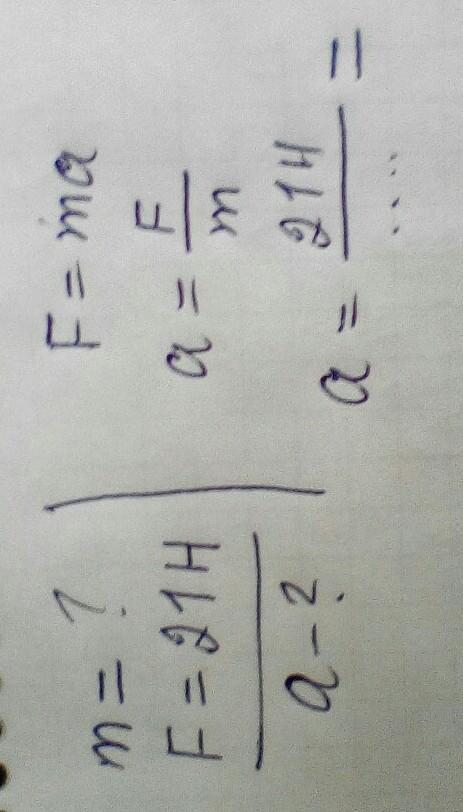 m = ?
F = 21H
a - ?
F = ma
a = F/m
a = 21H/.... =